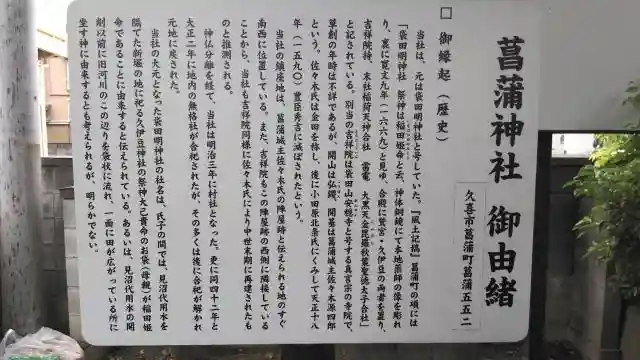 菖蒲神社 御由緒
久喜市菖蒲町菖蒲五五二
□ 御縁起（歴史）
当社は、元は袋田明神社と号していた。『風土記稿』菖蒲町の項には
「袋田明神社 祭神は稲田姫命と云、神体銅鏡にて本地薬師の像を彫れ
り、裏に寛文九年（一六六九）と見ゆ、合殿に鷲宮・久伊豆の両者を置り、
吉祥院持、末社稲荷天神合社 雷電 大黒天金毘羅秋葉聖徳太子合社」
と記されている。別当の吉祥院は袋田山安穏寺と号する真言宗の寺院で、
草創の年時は不詳であるが、開山は弘鑁、開基は菖蒲城主佐々木源四郎
という。佐々木氏は金田を称し、後に小田原北条氏にくみして天正十八
年（一五九〇）豊臣秀吉に滅ぼされたという。
当社の鎮座地は、菖蒲城主佐々木氏の陣屋跡と伝えられる地のすぐ
南西に位置している。また、吉祥院もこの陣屋跡の西側に隣接している
ことから、当社も吉祥院同様に佐々木氏により中世末期に再建されたも
のと推測される。
神仏分離を経て、当社は明治三年に村社となった。更に同四十二年と
大正二年に地内の無格社が合祀されたが、その多くは後に合祀が解かれ
元地に戻された。
当社の大元となった袋田明神社の社名は、氏子の間では、見沼代用水を
隔てた新堀の地に祀る久伊豆神社の祭神大己貴命のお袋（母親）が稲田姫
命であることに由来すると伝えられている。あるいは、見沼代用水の開
削以前に旧河川のこの辺りを袋状に流れ、一面に田が広がっている所に
坐す神に由来するとも考えられるが、明らかでない。